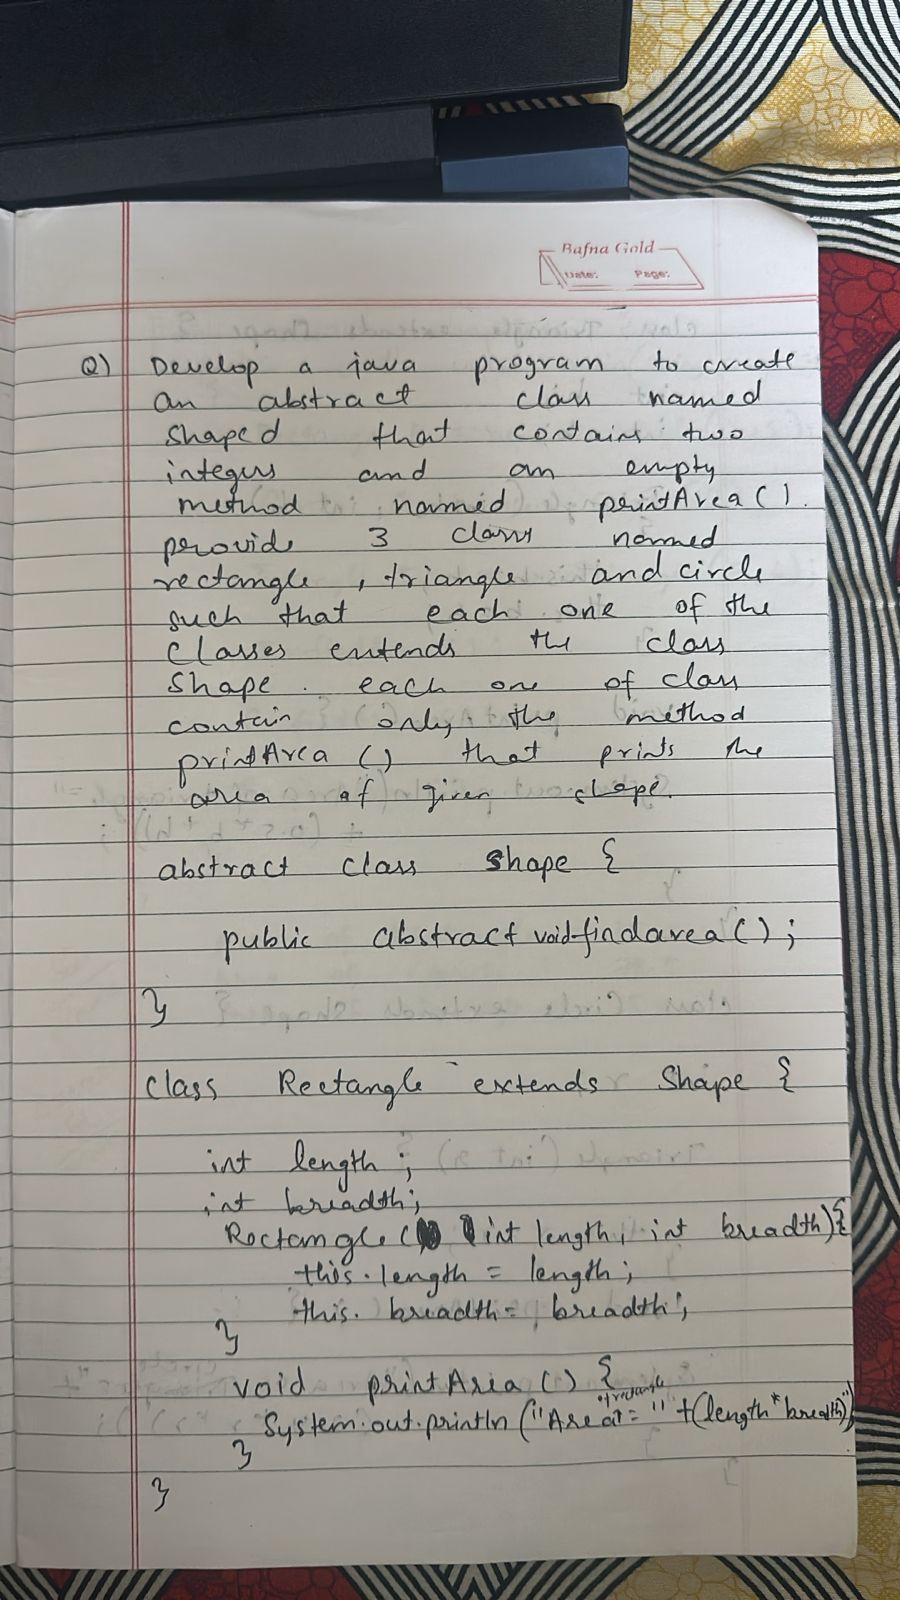 Bafna Gold
Date: Page:
Q) Develop a java program to create
an abstract class named
shaped that contains two
integers and an empty
method named printArea().
provide 3 class named
rectangle, triangle and circle
such that each one of the
classes extends the class
shape. each one of class
contain only the method
printArea () that prints the
area of given shape.
abstract class Shape {
public abstract void findarea();
}
class Rectangle extends Shape {
int length;
int breadth;
Rectangle ( int length, int breadth){
this.length = length;
this.breadth = breadth;
}
void printArea () {
of rectangle
System.out.println ("Area = " + (length * breadth)
}
}